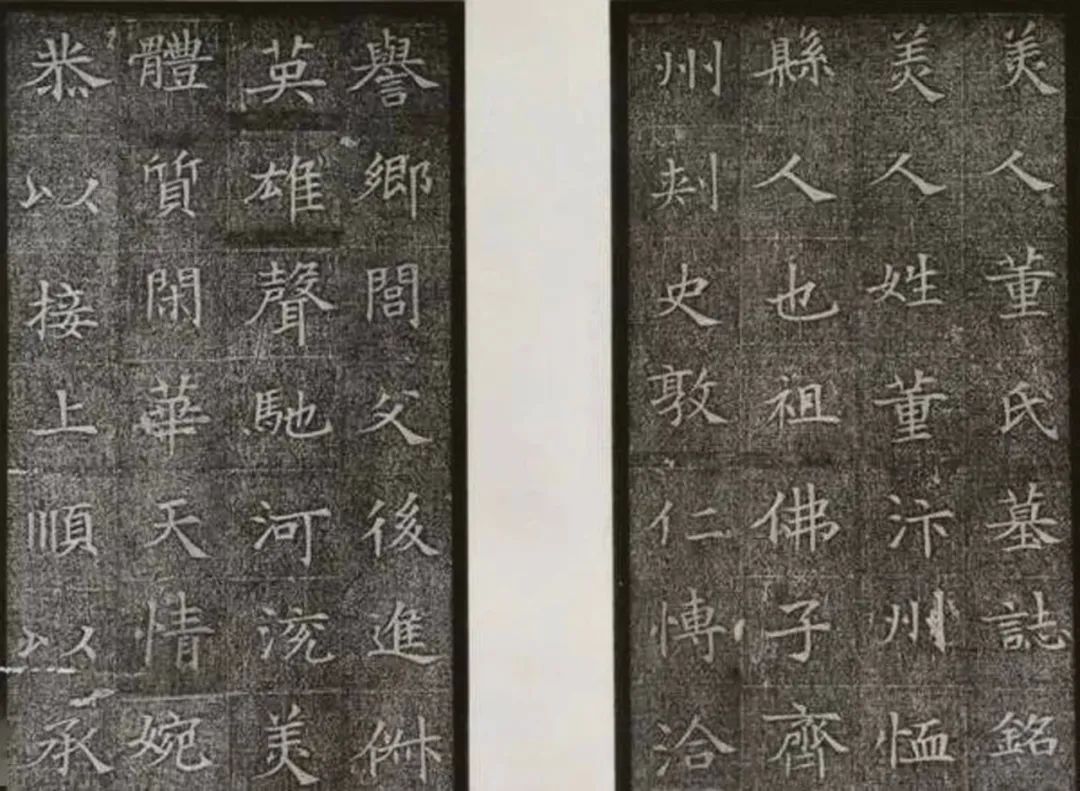 美人董氏墓誌銘
美人姓董汴州恤
縣人也祖佛子齊
州刺史敦仁愽洽
譽鄉閭父後進俶
英雄聲馳河渷美
體質閑華天情婉
恭以接上順以承